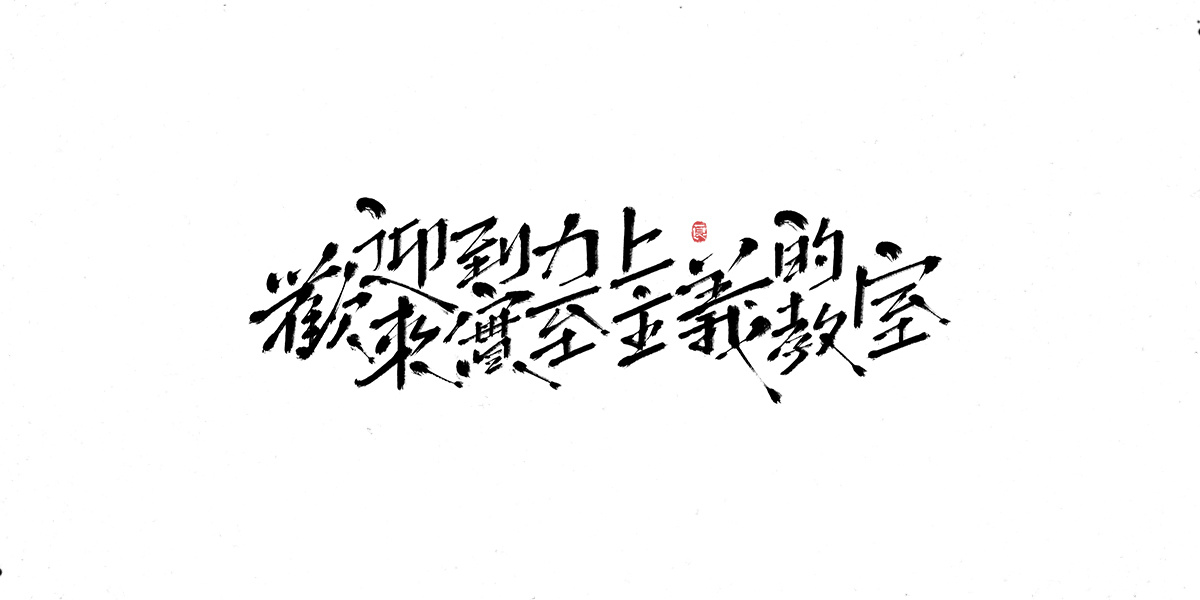 歡迎來到實力至上主義的教室